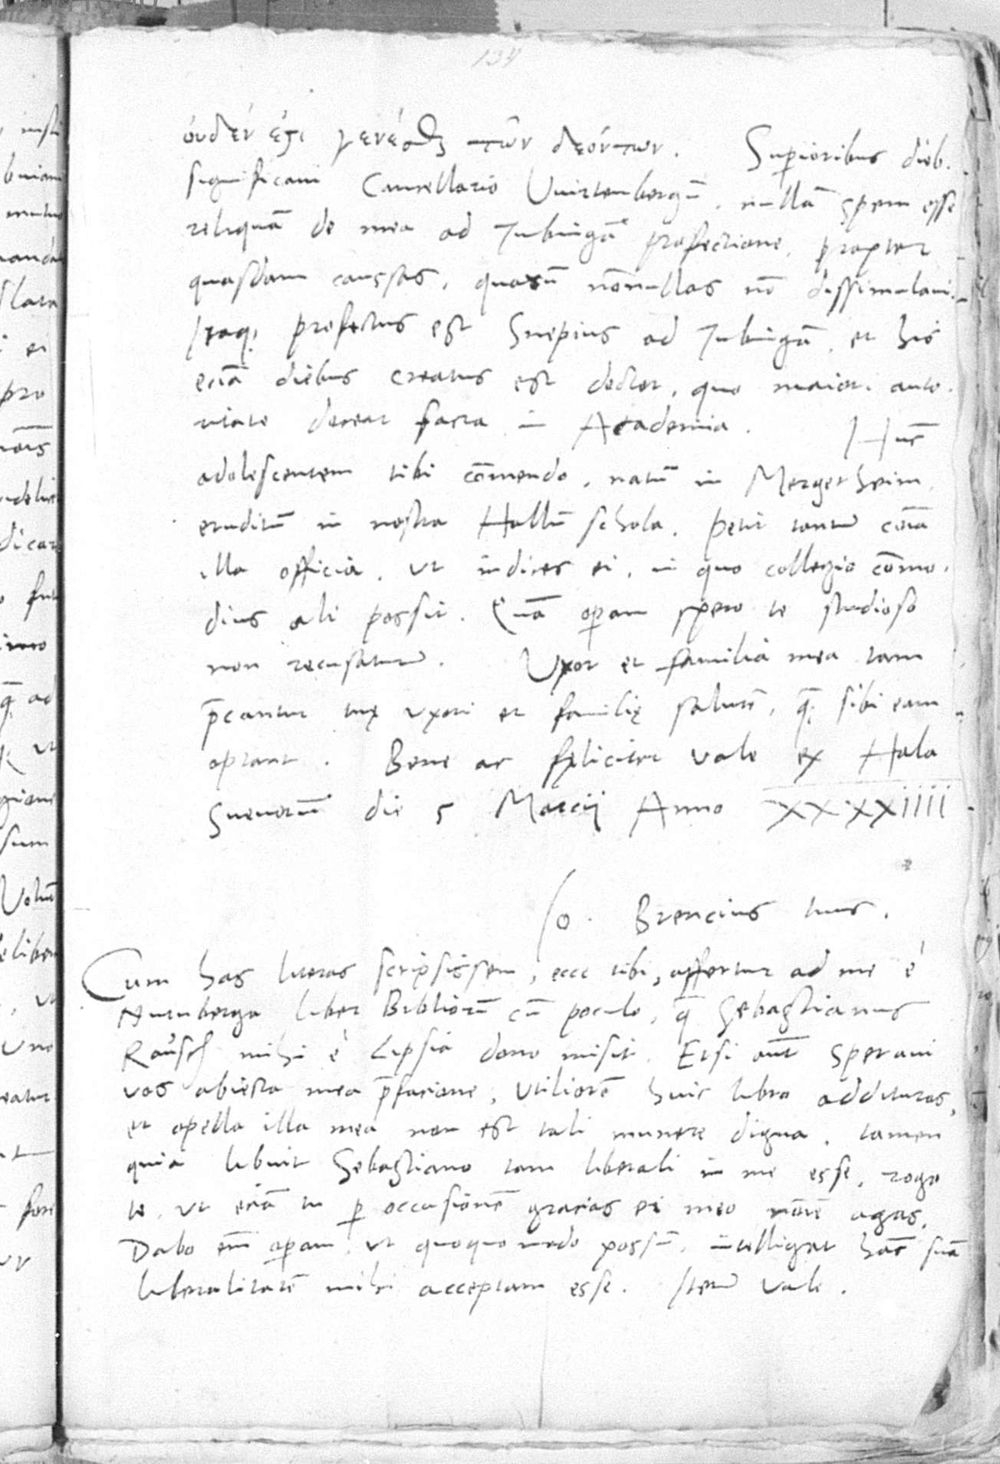 134
οὐδὲν ἔτι γενέσθαι τῶν δεόντων. Superioribus dieb.
significaui Cancellario Vuirtenbergẽ, nullã spem esse
reliquã de mea ad Tubingã profectione, propter
quasdam caussas, quarũ nõnullas nõ dissimulaui.
Itaq; profectus est Snepius ad Tubingã, et his
eciã diebus creatus est doctor, quo maiori auto-
ritate doceat sacra in Academia. Hũc
adolescentem tibi cõmendo, natũ in Mergetheim,
eruditũ in nostra Hallẽ schola. Petit tantũ cõia
illa officia, ut indices ei, in quo collegio cõmo-
dius ali possit. Quã operam spero te studioso
non recusaturũ. Vxor et familia mea tam
p̄cantur tuę vxori et familię salutẽ, q̄ sibi eam
optant. Bene ac fęliciter vale ex Hala
Sueuorũ die 5 Marcij Anno XXXXIIII
Jo. Brencius tuus.
Cum has literas scripsissem, ecce tibi, affertur ad me è
Nurnberga liber Bibliorũ cũ poculo, q̄ Sebastianus
Rausch mihi è Lipsia dono misit. Etsi autẽ speraui
vos abiecta mea p̄facione, vtiliorẽ huic libro addituros,
et opella illa mea non est tali munere digna, tamen
quia libuit Sebastiano tam liberali in me esse, rogo
te, vt eciã tu per occasionẽ gracias ei meo nõie agas.
Dabo em̄ operam, ut quoquo modo possũ, intelligat hãc suã
liberalitatẽ mihi acceptam esse. Iterũ vale.